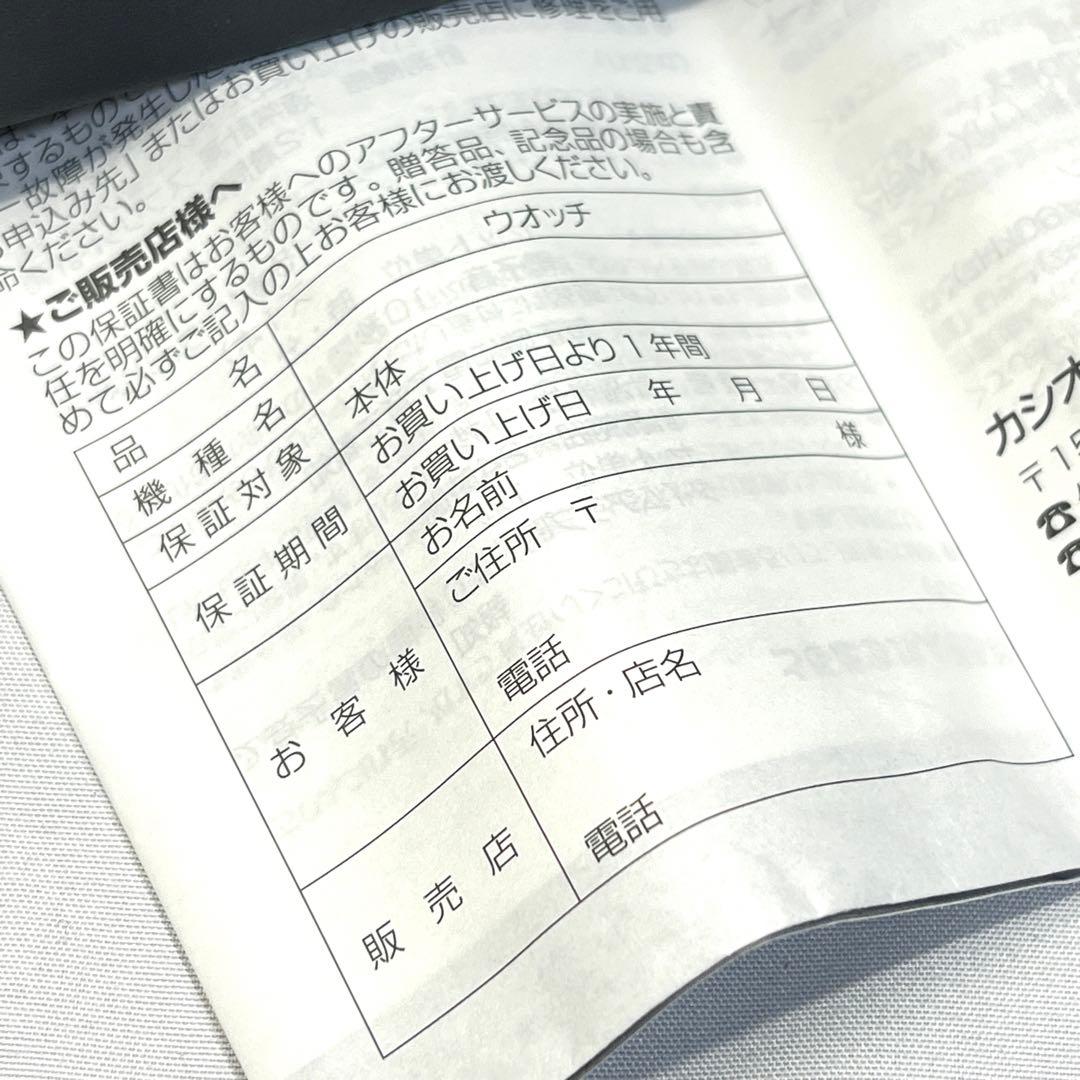 の販売店に修理をご用
は、
するもの
またはお買い上げの
故障が発生した
申込み先」
ください。
★ご販売店様へ
この保証書はお客様へのアフターサービスの実施と責
任を明確にするものです。贈答品、記念品の場合も含
めて必ずご記入の上お客様にお渡しください。
品 名 ウオッチ
機 種 名
保証対象 本体
保証期間 お買い上げ日より1年間
お買い上げ日 年 月 日
お 客 様 お名前 様
ご住所 〒
電話
販 売 店 住所・店名
電話
カシオ
〒15
☎
☎